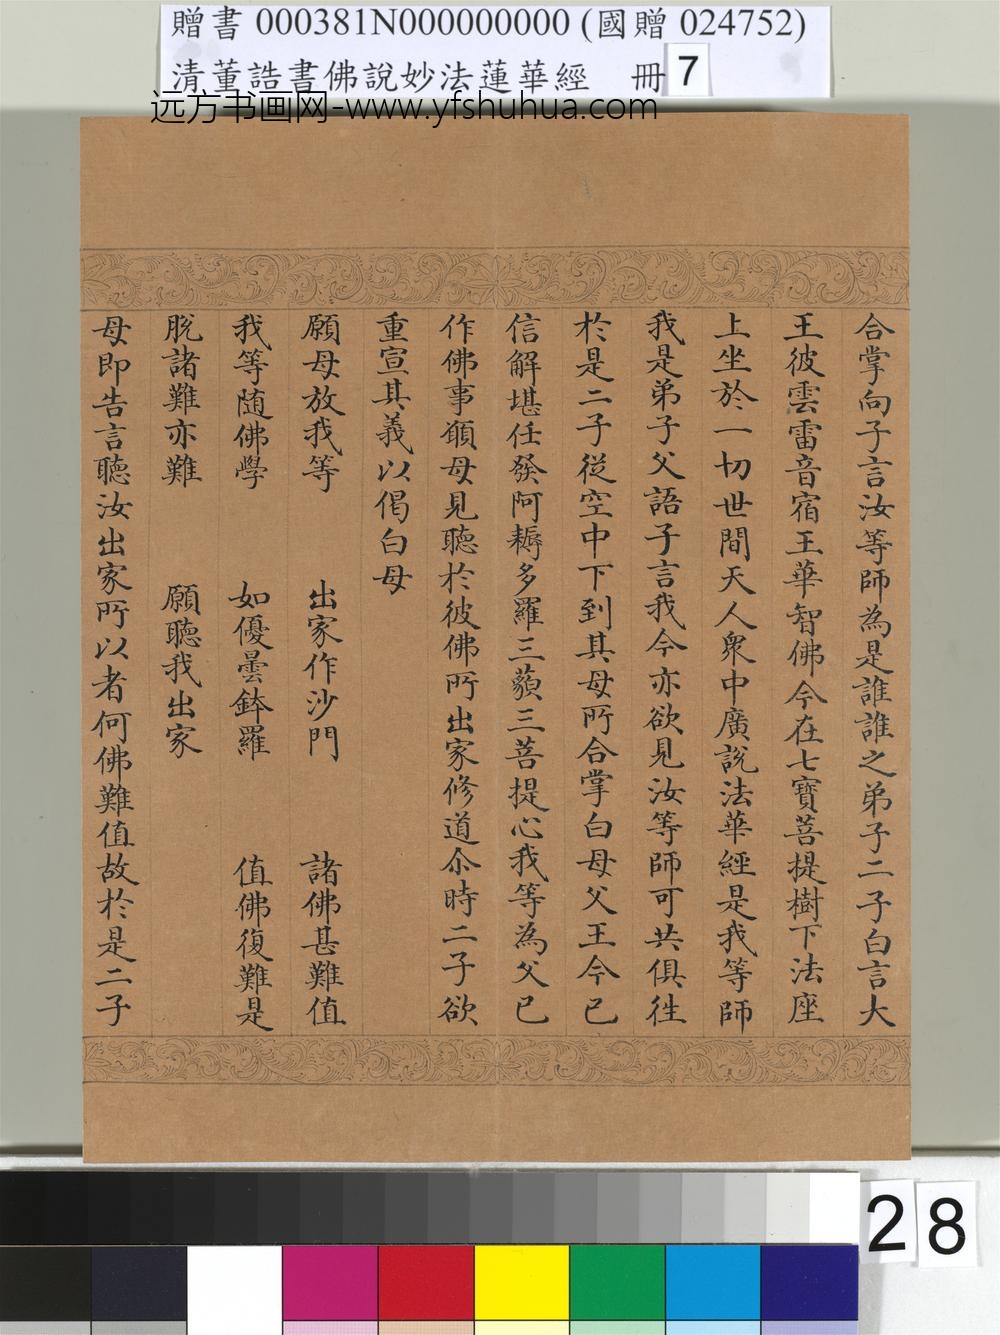 贈書 000381N000000000 (國贈 024752)
清董誥書佛說妙法蓮華經 冊 7
远方书画网-www.yfshuhua.com
合掌向子言汝等師為是誰誰之弟子二子白言大
王彼雲雷音宿王華智佛今在七寶菩提樹下法座
上坐於一切世間天人衆中廣說法華經是我等師
我是弟子父語子言我今亦欲見汝等師可共俱徃
於是二子從空中下到其母所合掌白母父王今已
信解堪任發阿耨多羅三藐三菩提心我等為父已
作佛事願母見聽於彼佛所出家修道尒時二子欲
重宣其義以偈白母
願母放我等 出家作沙門 諸佛甚難值
我等随佛學 如優曇鉢羅 值佛復難是
脫諸難亦難 願聽我出家
母即告言聽汝出家所以者何佛難值故於是二子
28